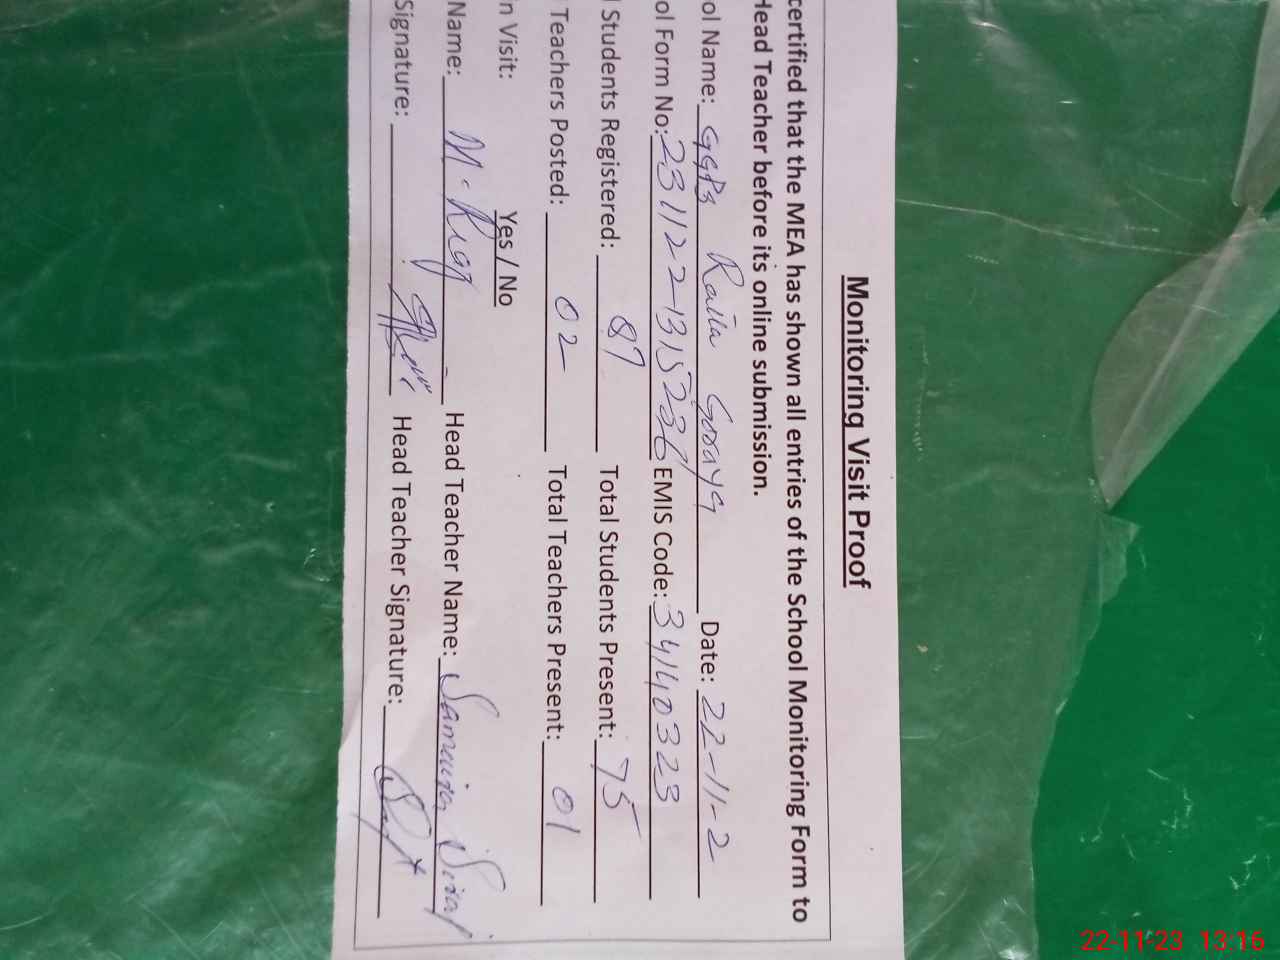 Monitoring Visit Proof
certified that the MEA has shown all entries of the School Monitoring Form to
Head Teacher before its online submission.
ol Name: GGPS Ralla Goraya Date: 22-11-2
ol Form No: 231122-1315236 EMIS Code: 34140323
l Students Registered: 87 Total Students Present: 75
Teachers Posted: 02 Total Teachers Present: 01
n Visit: Yes / No
Name: M. Head Teacher Name: Samaira
Signature: Head Teacher Signature:
22-11-23 13:16